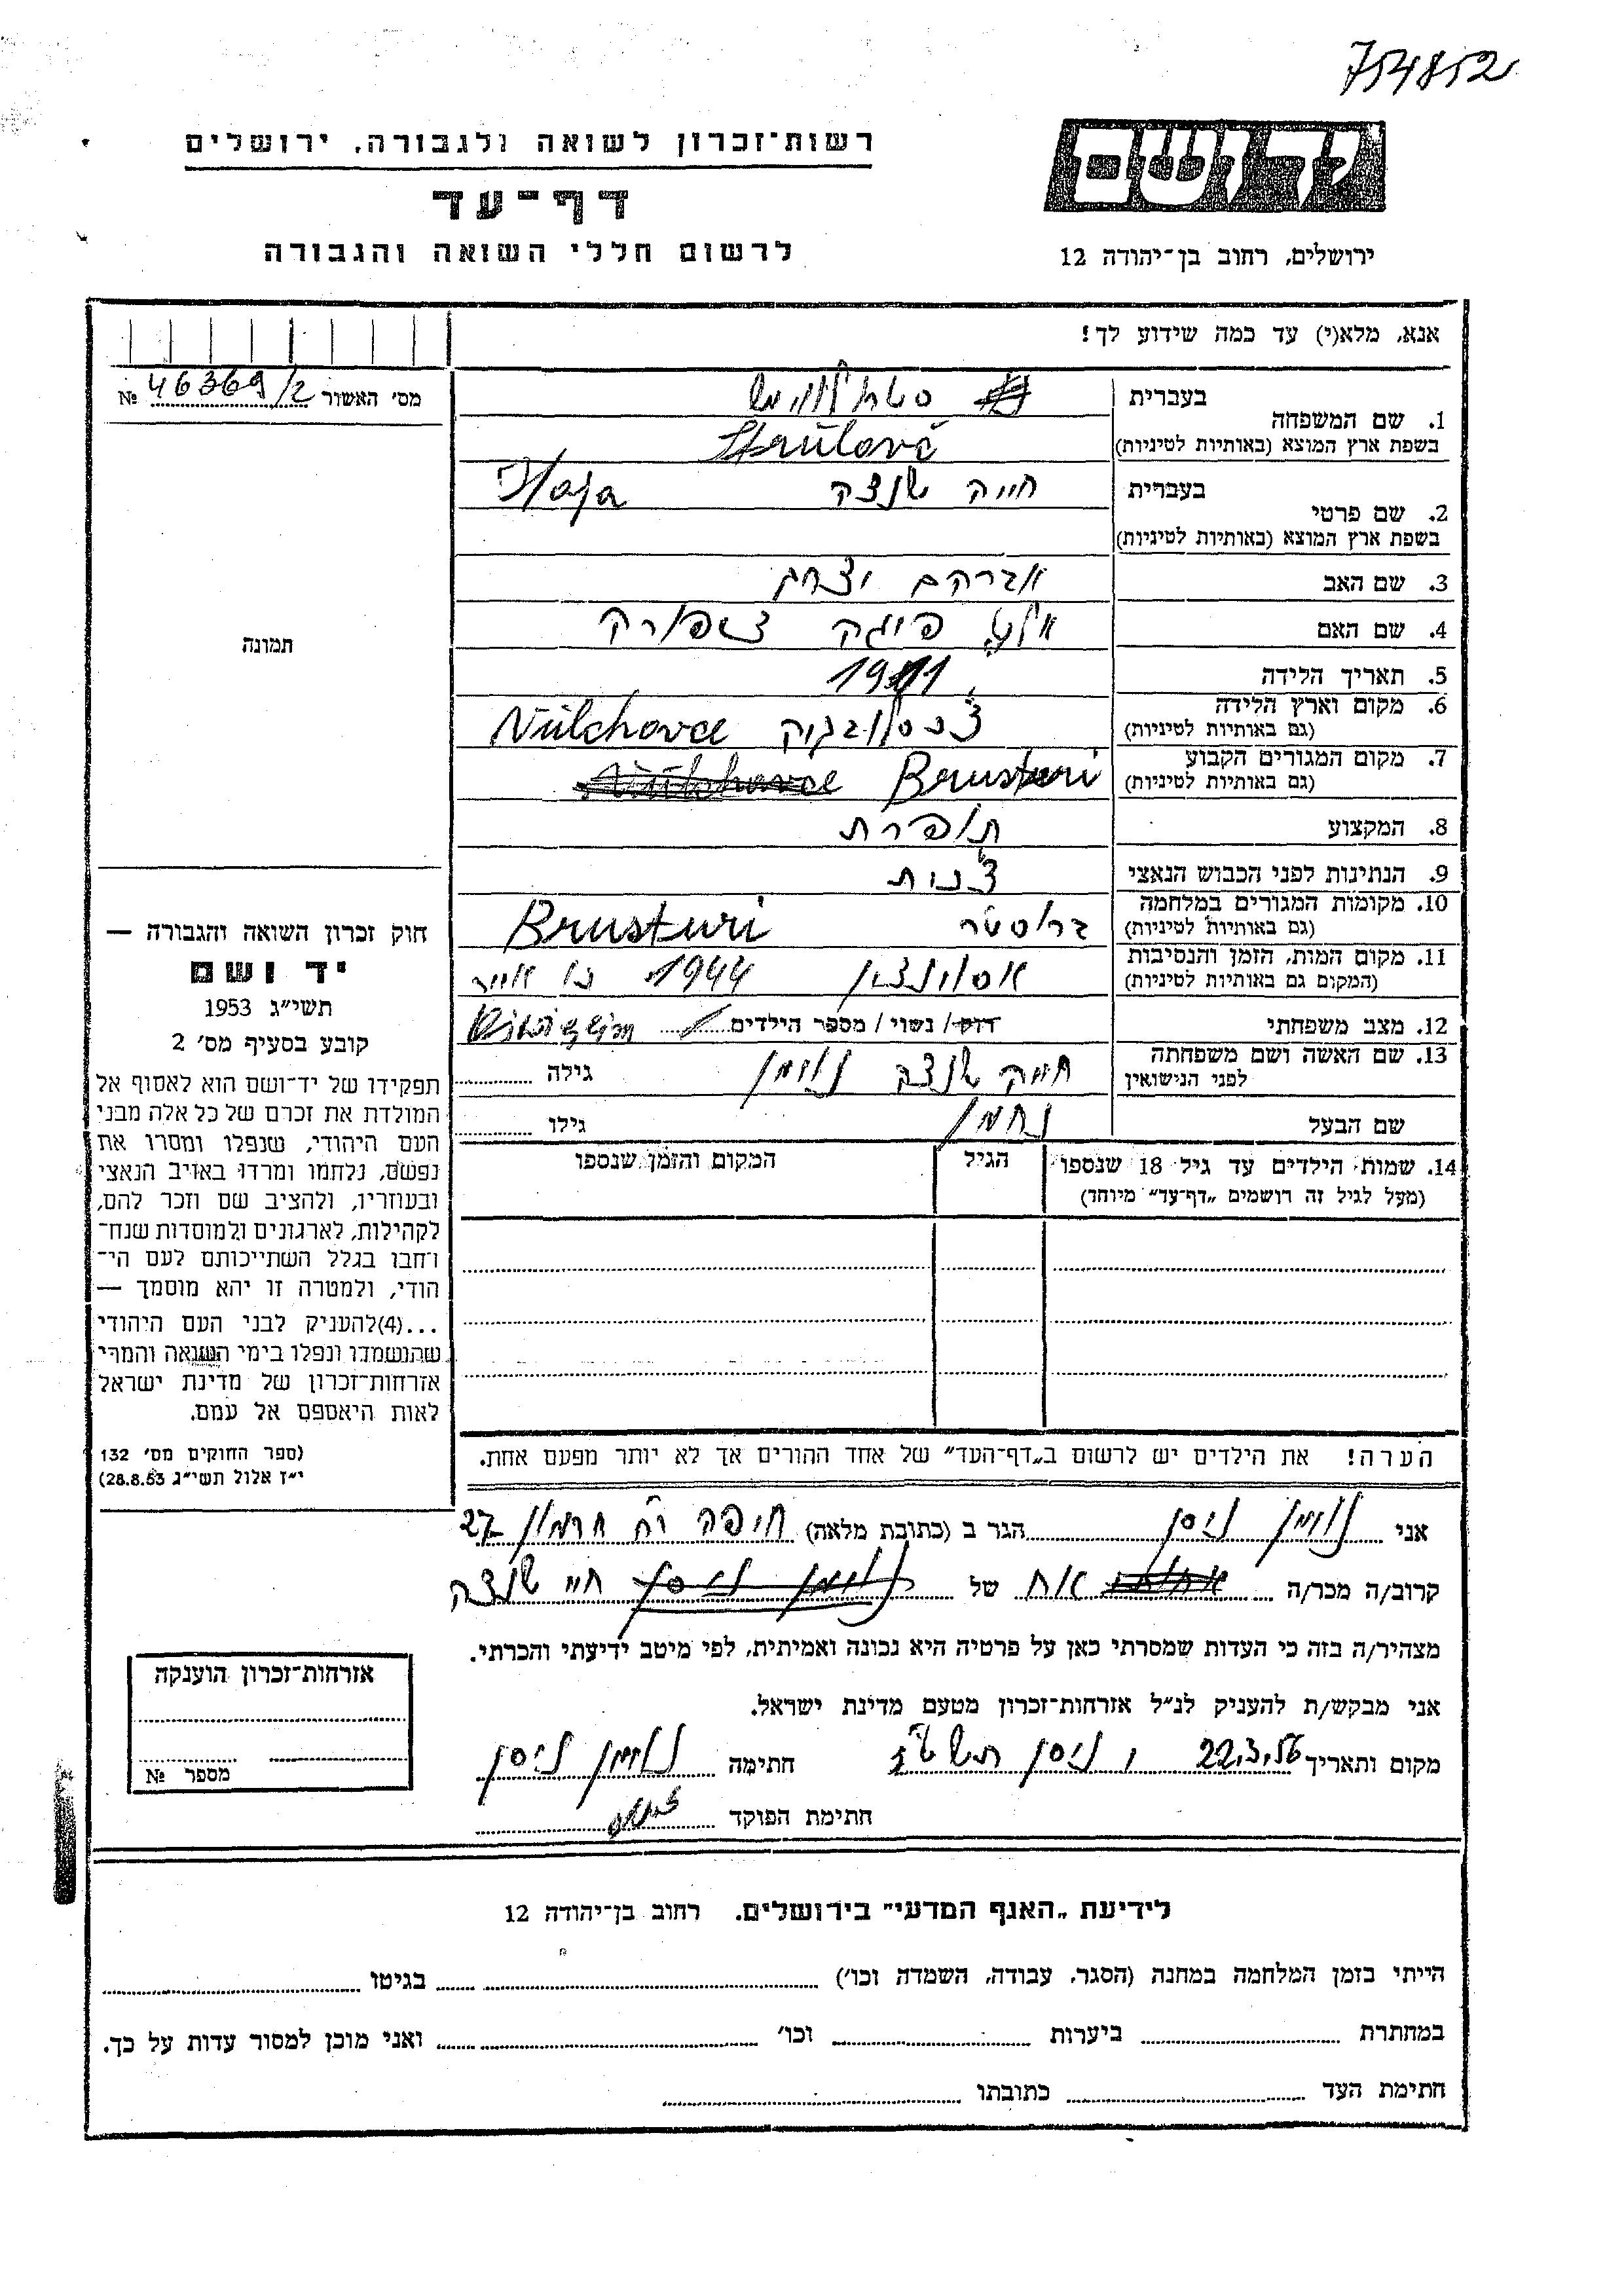 754852
רשות־זכרון לשואה ולגבורה, ירושלים
דף־עד
לרשום חללי השואה והגבורה
ידושם
ירושלים, רחוב בן־יהודה 12
אנא, מלא(י) עד כמה שידוע לך!
מס׳ האשור 46369/2 №
1. שם המשפחה
בעברית
בשפת ארץ המוצא (באותיות לטיניות)
2. שם פרטי
בעברית חייה שנצה Haja
בשפת ארץ המוצא (באותיות לטיניות)
3. שם האב אברהם יצחק
4. שם האם פייגה צפורה
5. תאריך הלידה 1911
6. מקום וארץ הלידה
(גם באותיות לטיניות)
7. מקום המגורים הקבוע Brusturi
(גם באותיות לטיניות)
8. המקצוע תופרת
9. הנתינות לפני הכבוש הנאצי
10. מקומות המגורים במלחמה Brusturi
(גם באותיות לטיניות)
11. מקום המות, הזמן והנסיבות 1944
(המקום גם באותיות לטיניות)
12. מצב משפחתי רוק/ נשוי/ מספר הילדים
13. שם האשה ושם משפחתה חייה שנצה נוימן גילה
לפני הנישואין
שם הבעל נחמן גילו
14. שמות הילדים עד גיל 18 שנספו הגיל המקום והזמן שנספו
(מעל לגיל זה רושמים „דף־עד״ מיוחד)
הערה! את הילדים יש לרשום ב„דף־העד״ של אחד ההורים אך לא יותר מפעם אחת.
תמונה
חוק זכרון השואה והגבורה —
יד ושם
תשי״ג 1953
קובע בסעיף מס׳ 2
תפקידו של יד־ושם הוא לאסוף אל
המולדת את זכרם של כל אלה מבני
העם היהודי, שנפלו ומסרו את
נפשם, נלחמו ומרדו באויב הנאצי
ובעוזריו, ולהציב שם וזכר להם,
לקהילות, לארגונים ולמוסדות שנח־
רחבו בגלל השתייכותם לעם הי־
הודי, ולמטרה זו יהא מוסמך —
...(4)להעניק לבני העם היהודי
שהושמדו ונפלו בימי השואה והמרי
אזרחות־זכרון של מדינת ישראל
לאות היאספם אל עמם.
(ספר החוקים מס׳ 132
י״ז אלול תשי״ג 28.8.53)
אני נוימן ניסן הגר ב (כתובת מלאה) חיפה רח חרמון 27
קרוב/ה מכר/ה אח של חיי שנצה
מצהיר/ה בזה כי העדות שמסרתי כאן על פרטיה היא נכונה ואמיתית, לפי מיטב ידיעתי והכרתי.
אני מבקש/ת להעניק לנ״ל אזרחות־זכרון מטעם מדינת ישראל.
מקום ותאריך 22.3.56 ו ניסן חתימה נוימן ניסן
חתימת הפוקד
אזרחות־זכרון הוענקה
מספר №
לידיעת „האגף המדעי״ בירושלים, רחוב בן־יהודה 12
הייתי בזמן המלחמה במחנה (הסגר, עבודה, השמדה וכו׳) בגיטו
במחתרת ביערות וכו׳ ואני מוכן למסור עדות על כך.
חתימת העד כתובתו